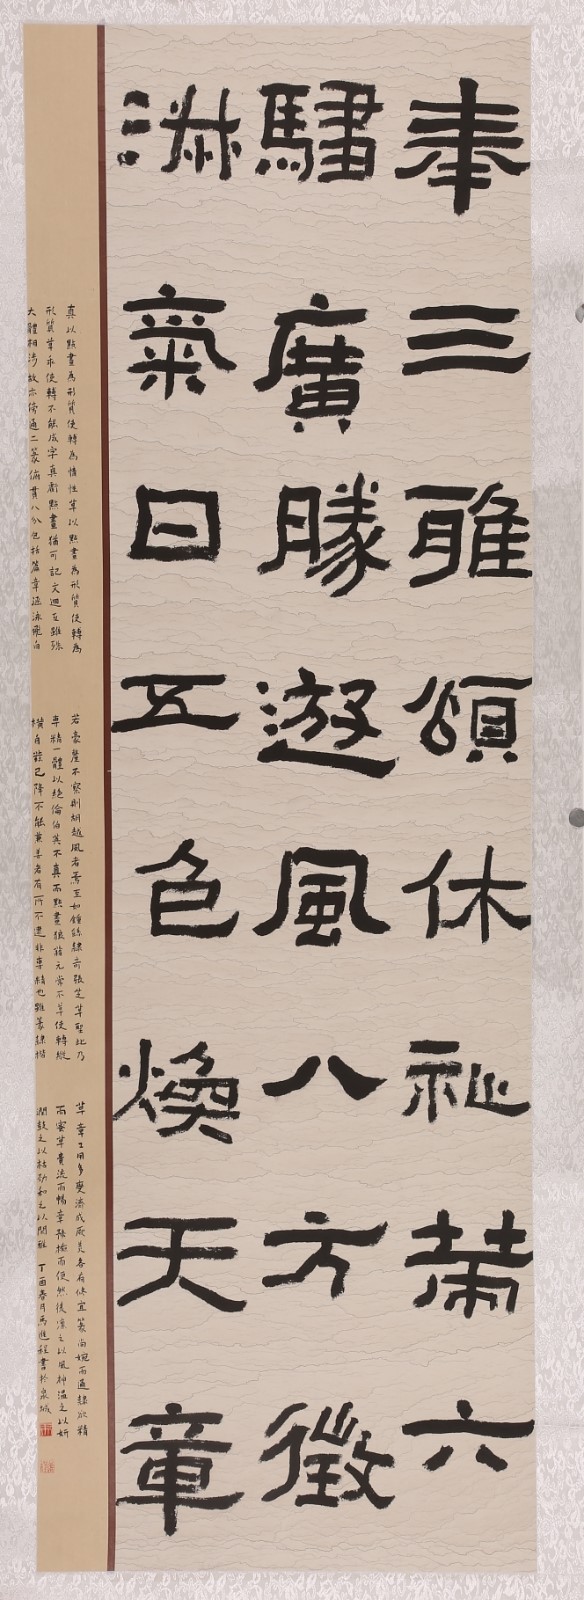 奉三雅頌休祉策六
驌廣勝遊風八方徵
淑氣日五色煥天章
真以點畫為形質使轉為情性草以點畫為形質使轉為
形質草乖使轉不能成字真虧點畫猶可記文迴互雖殊
大體相涉故亦傍通二篆俯貫八分包括篇章涵泳飛白
若毫釐不察則胡越風者焉至如鍾繇隸奇張芝草聖此乃
專精一體以絕倫伯英不真而點畫狼藉元常不草使轉縱
橫自茲已降不能兼善者有所不逮非專精也雖篆隸
草章工用多變濟成厥美各有攸宜篆尚婉而通隸欲精
而密草貴流而暢章務檢而便然後凜之以風神溫之以妍
潤鼓之以枯勁和之以閑雅 丁酉春月馬進程書於泉城